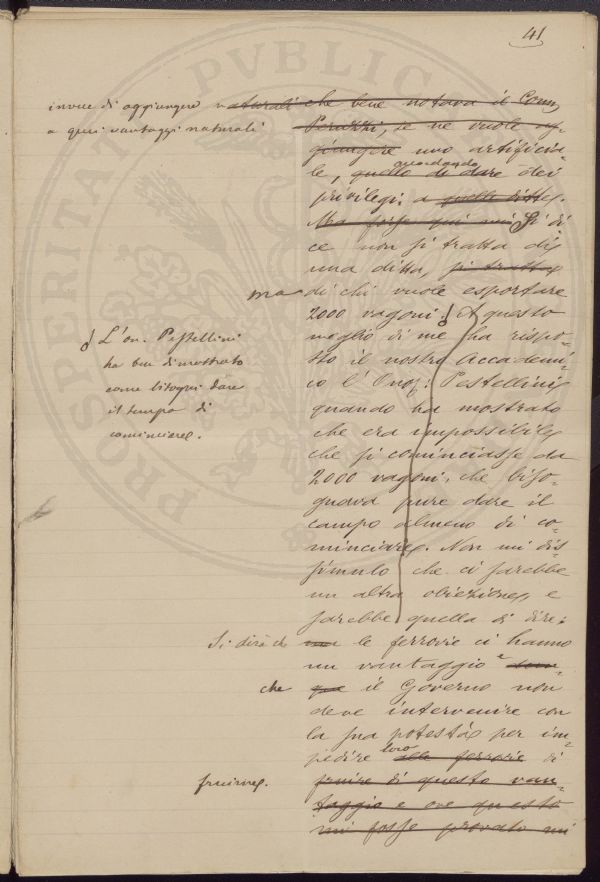 41
invece di aggiungere
a quei vantaggi naturali
naturali che bene notava il Comm.
Peruzzi, se ne vuole ag-
giungere uno artificia-
le, quello di dare accordando dei
privilegi a quelle ditte.
Ma forse qui mi Si di-
ce non si tratta di
una ditta, si tratta
ma di chi vuole esportare
2000 vagoni. A questo
meglio di me ha rispo-
sto il nostro Accademi-
co l'Onor: Pestellini
quando ha mostrato
che era impossibile
che si cominciasse da
2000 vagoni, che biso-
gnava pure dare il
campo almeno di co-
minciare. Non mi dis-
simulo che ci sarebbe
un altra obiezione e
sarebbe quella di dire:
L'on. Pestellini
ha ben dimostrato
come bisogni dare
il tempo di
cominciare.
Si dirà che ma le ferrovie ci hanno
un vantaggio
che il Governo non
deve intervenire con
la sua potestà per im-
pedire loro alle ferrovie di
fruirne. fruire di questo van-
taggio e ove questo
mi fosse provato mi
PROSPERITATI PVBLICAE